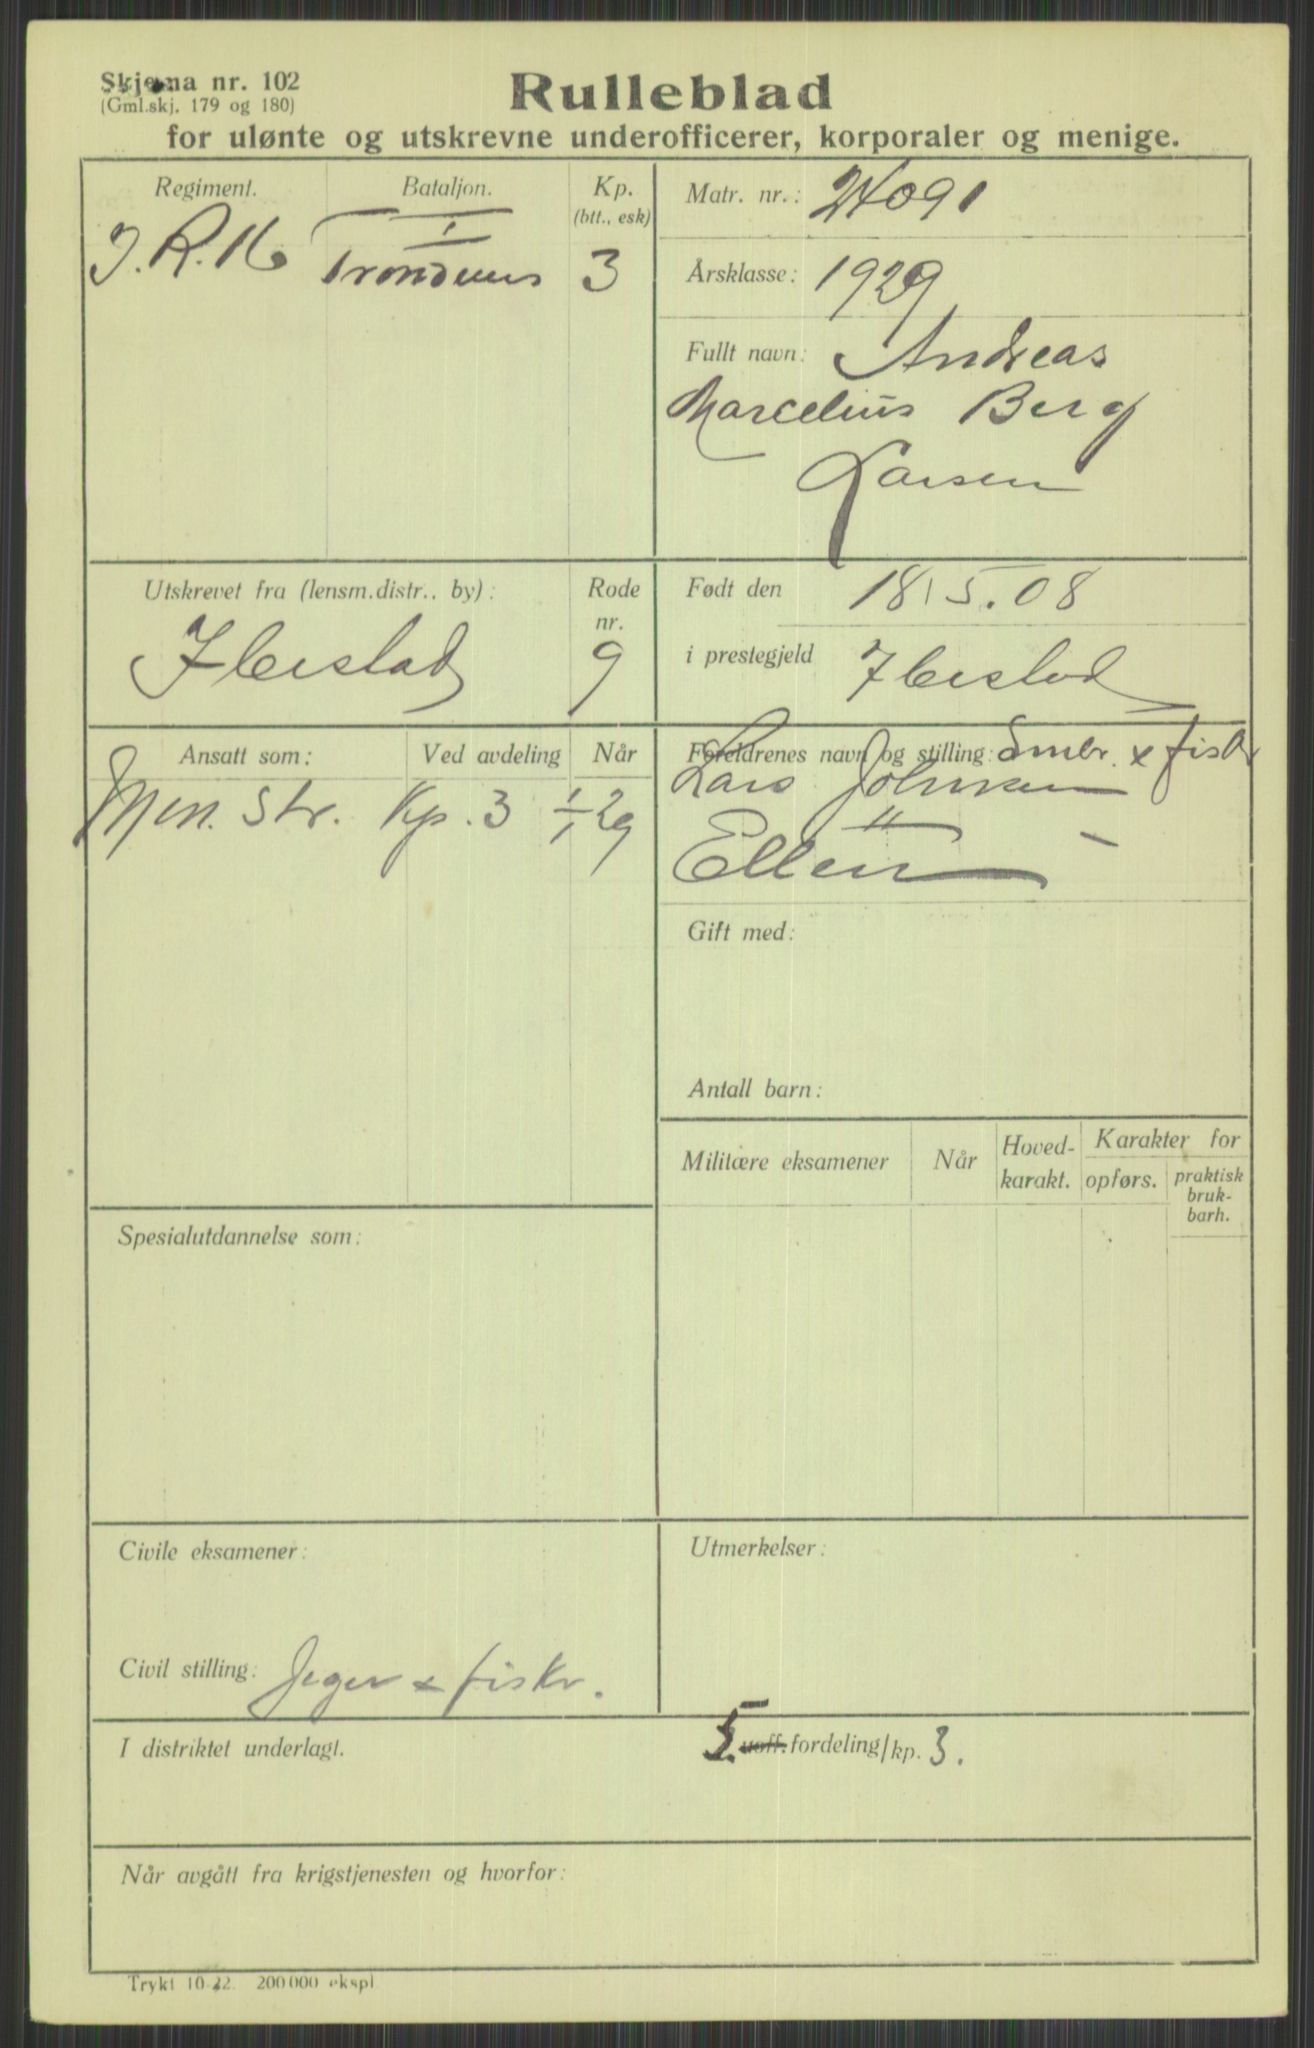 Skjema nr. 102
(Gml.skj. 179 og 180)
Rulleblad
for ulønte og utskrevne underofficerer, korporaler og menige.
Regiment.
Bataljon.
Kp.
(btt., esk)
I.R. 16
I
Trondenes
3
Matr. nr.: 24091
Årsklasse: 1929
Fullt navn: Andreas
Marcelius Berg
Larsen
Utskrevet fra (lensm.distr., by):
Rode
nr.
Ibestad
9
Født den 18/5.08
i prestegjeld Ibestad
Ansatt som:
Ved avdeling
Når
Men. Str. Kp. 3 1/1 29
Foreldrenes navn og stilling: Småbr. & fiskr
Lars Johnsen
Ellen " -
Gift med:
Antall barn:
Militære eksamener
Når
Hoved-
karakt.
Karakter for
opførs.
praktisk
bruk-
barh.
Spesialutdannelse som:
Civile eksamener:
Civil stilling: Jeger & fiskr.
Utmerkelser:
I distriktet underlagt.
uoff. fordeling/kp. 3.
Når avgått fra krigstjenesten og hvorfor:
Trykt 10-22. 200 000 ekspl